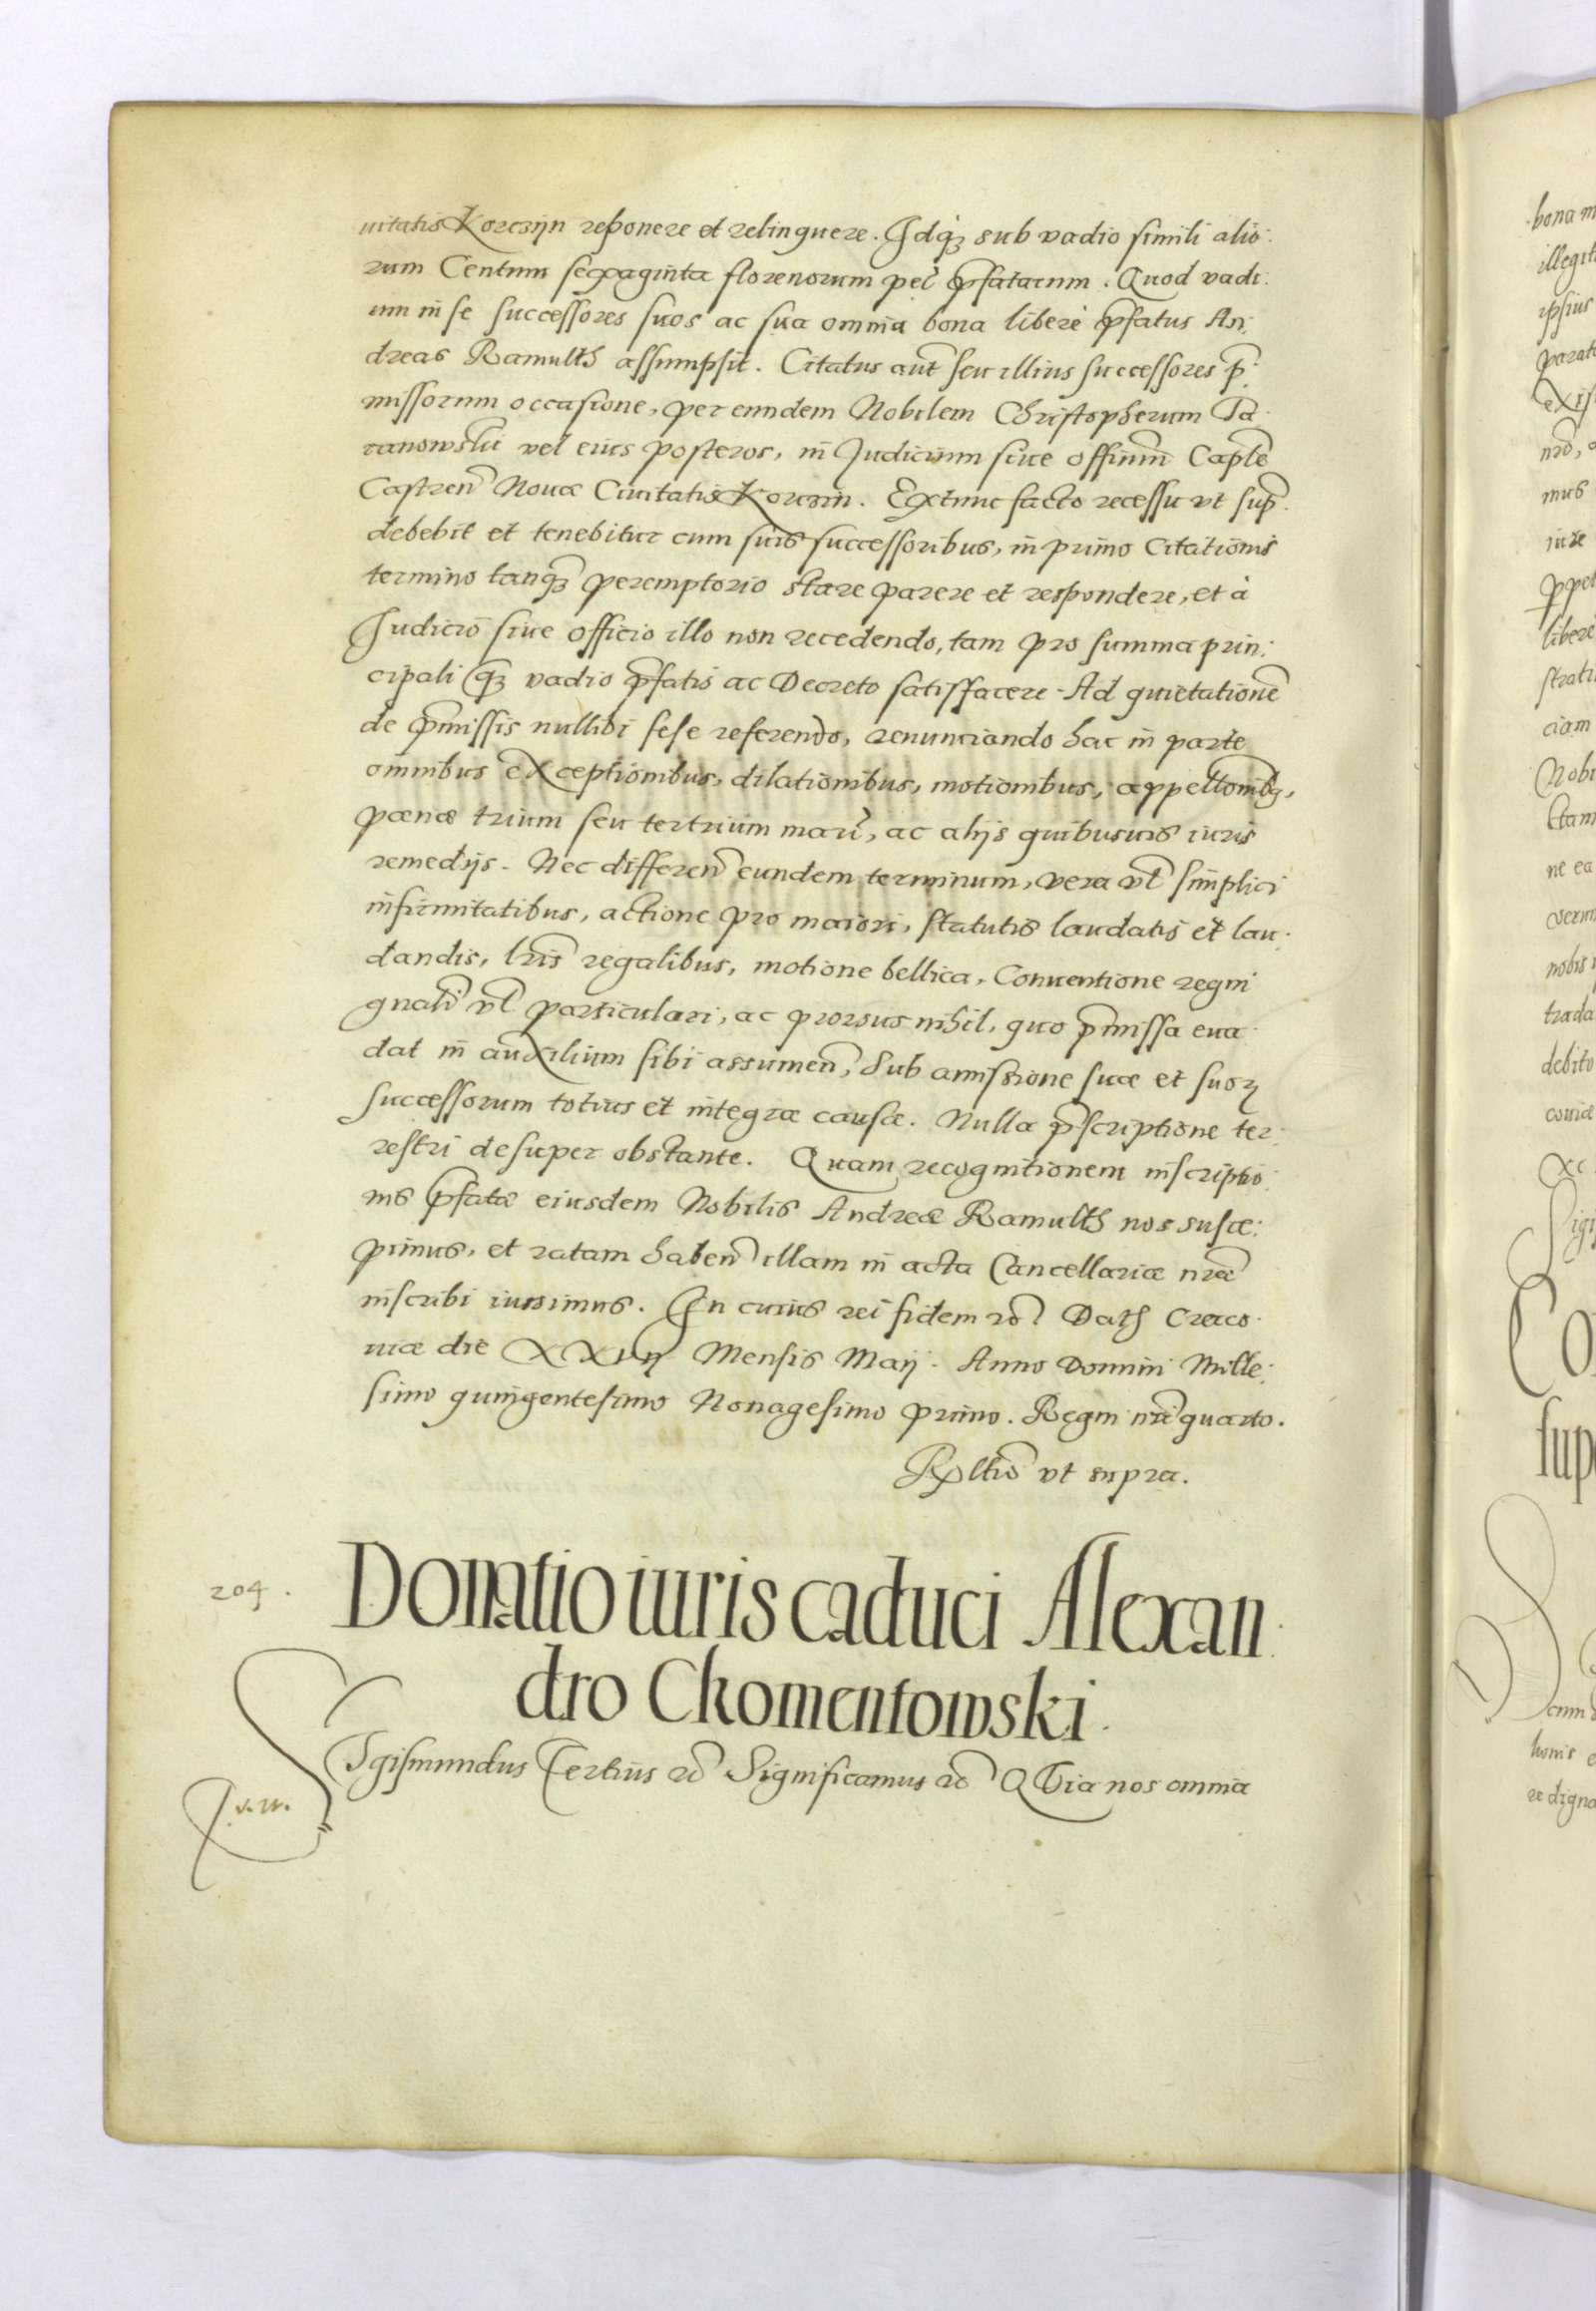 uitatis Korczijn reponere et relinquere. Idq3 sub vadio simili alio:
rum Centum sexaginta florenorum pel̃ p̃fatarum. Quod vadi:
um in se successores suos ac sua omnia bona liberè p̃fatus An:
dreas Ramulth assumpsit. Citatus aut̃ seu illius successores p̃:
missorum occasione, per eundem Nobilem Christopherum Ta:
ranowski vel eius posteros, in Judicium siue offium̃ Capl̃e
Castren̄ Nouæ Ciuitatis Korczin. Extunc facto recessu vt sup̃.
debebit et tenebitur cum suis successoribus, in primo Citationis
termino tanq̃3 peremptorio stare parere et respondere, et à
Judicio siue officio illo non recedendo, tam pro summa prin:
cipali q̃3 vadio p̃fatis ac Decreto satisfacere. Ad quietationẽ
de p̃missis nullibi sese referendo, renunciando hac in parte
omnibus exceptionibus, dilationibus, motionibus, appeltonib9,
pœnæ trium seu tertrium mar̃, ac alijs quibusuis iuris
remedijs. Nec differen̄ eundem terminum, vera vl̃ simplici
infirmitatibus, actione pro maiori, statutis laudatis et lau:
dandis, lr̃is regalibus, motione bellica, Conuentione regni
gnali̇̃ vl̃ particulari, ac prorsus nihil, quo p̃missa eua:
dat in auxilium sibi assumen̄, Sub amissione suæ et suoꝝ
successorum totius et integræ causæ. Nulla p̃scriptione ter:
restri desuper obstante. Quam recognitionem inscriptio:
nis p̃fatæ eiusdem Nobilis Andreæ Ramulth nos susce:
pimus, et ratam haben̄ illam in acta Cancellariæ nr̃æ
inscribi iussimus. In cuius rei fidem ꝛc̃ Dat̃ Craco:
uiæ die XXVII Mensis Maij. Anno Domini Mille:
simo quingentesimo Nonagesimo primo. Regni nr̃i quarto.
Rp̃ltio vt supra.
204.
Donatio iuris caduci Alexan:
dro Chomentowski.
SIgismundus Tertius ꝛc̃ Significamus ꝛc̃ QVia nos omnia